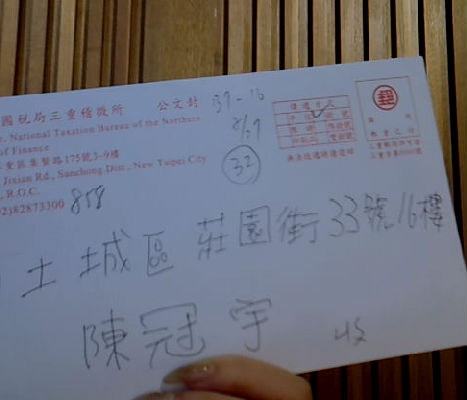 國稅局三重稽徵所 公文封
39-16
National Taxation Bureau of the Northern
of Finance
重區集賢路175號3-9樓
Jixian Rd., Sanchong Dist., New Taipei City
R.O.C.
02)82873300 858
8/29
32
郵
土城區 莊園街33號16樓
陳冠宇 收